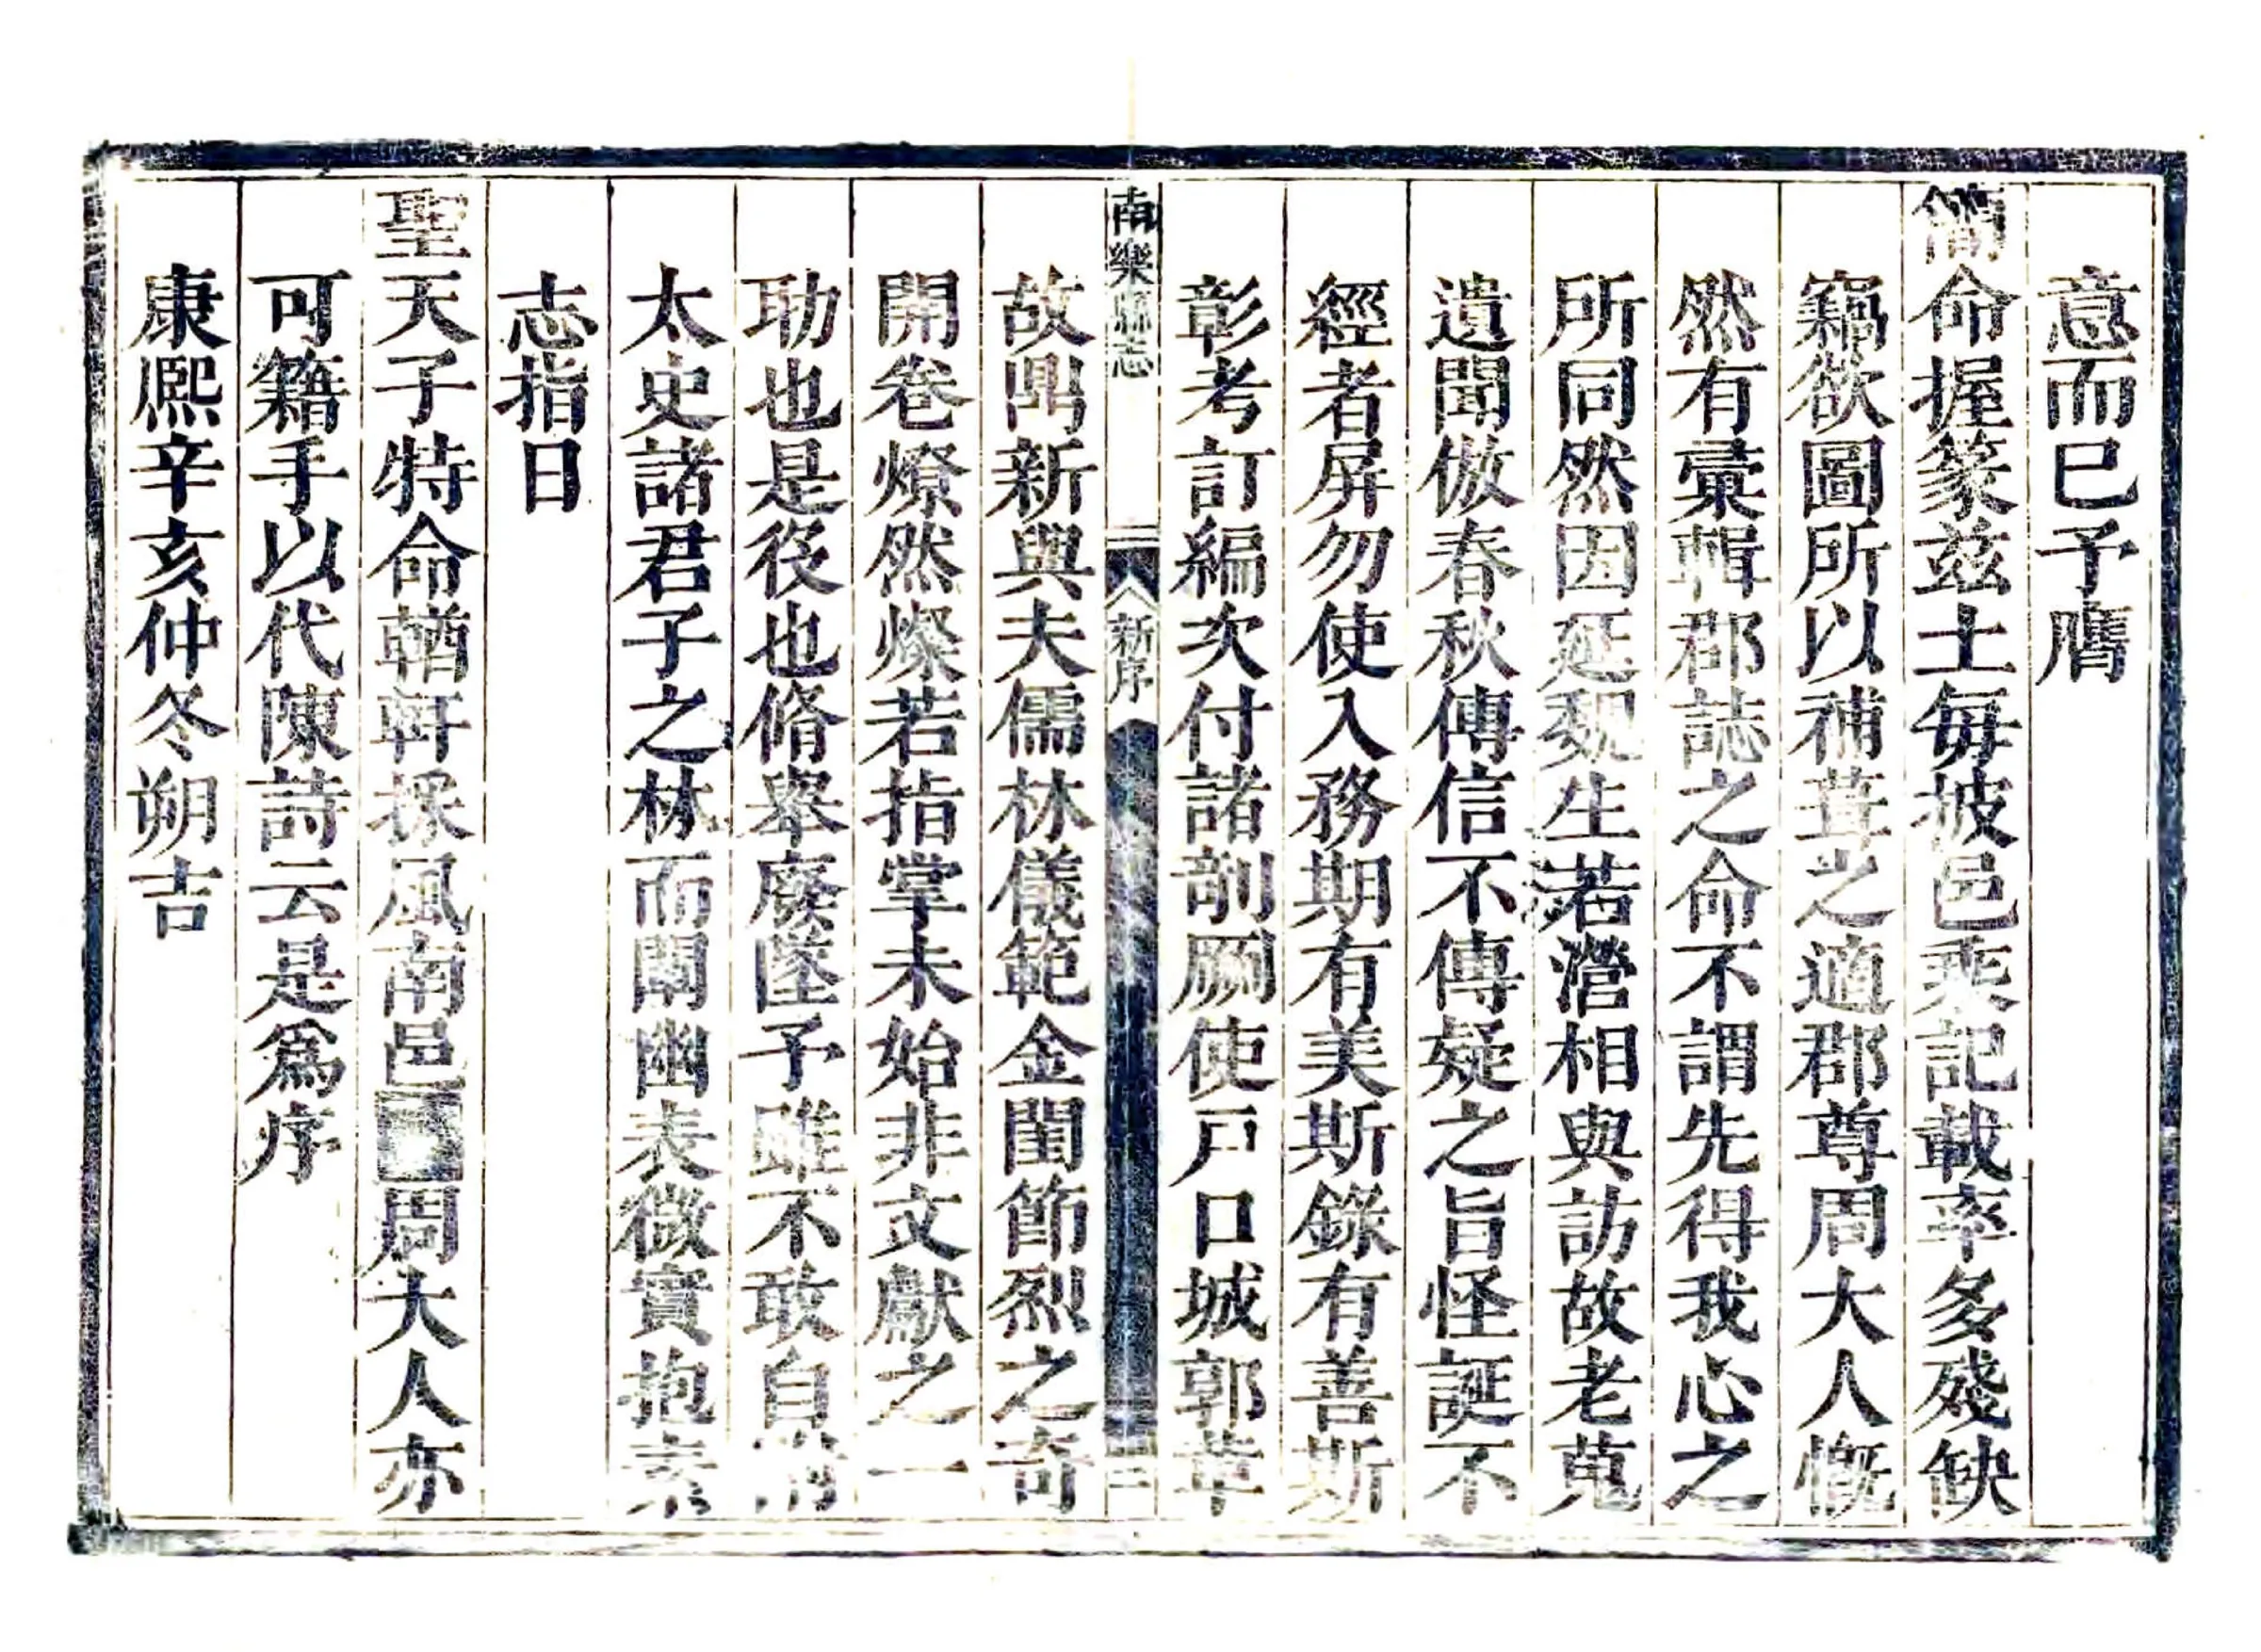 意而已予膺
簡命握篆茲土每披邑乘記載率多殘缺
竊欲圖所以補葺之適郡尊周大人慨
然有彙輯郡誌之命不謂先得我心之
所同然因延魏生若瀅相與訪故老蒐
遺聞倣春秋傳信不傳疑之旨怪誕不
經者屏勿使入務期有美斯錄有善斯
彰考訂編次付諸剞劂使戶口城郭革
南樂縣志
新序
三
故鼎新與夫儒林儀範金閨節烈之奇
開卷燎然燦若指掌未始非文獻之一
功也是役也脩舉廢墜予雖不敢自
太史諸君子之林而闡幽表微實抱素
志指日
聖天子特命輶軒採風南邑周大人亦
可籍手以代陳詩云是爲序
康熙辛亥仲冬朔吉